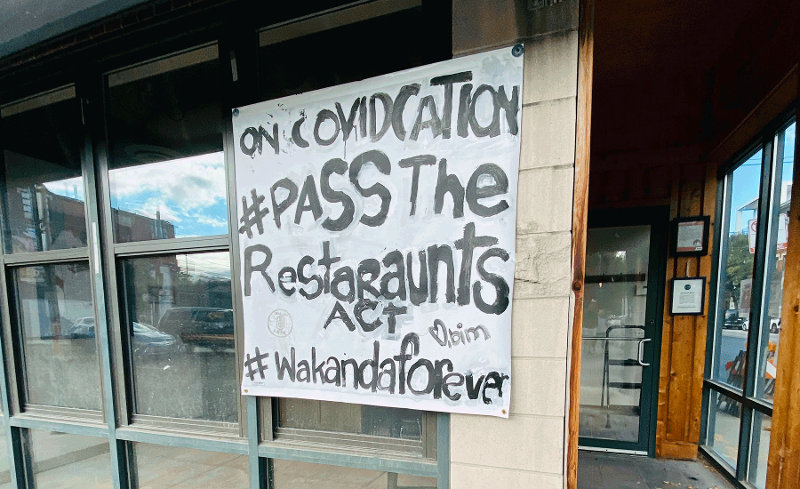 ON COVIDCATION
#PASS The
Restaraunts
ACT
#Wakandaforever